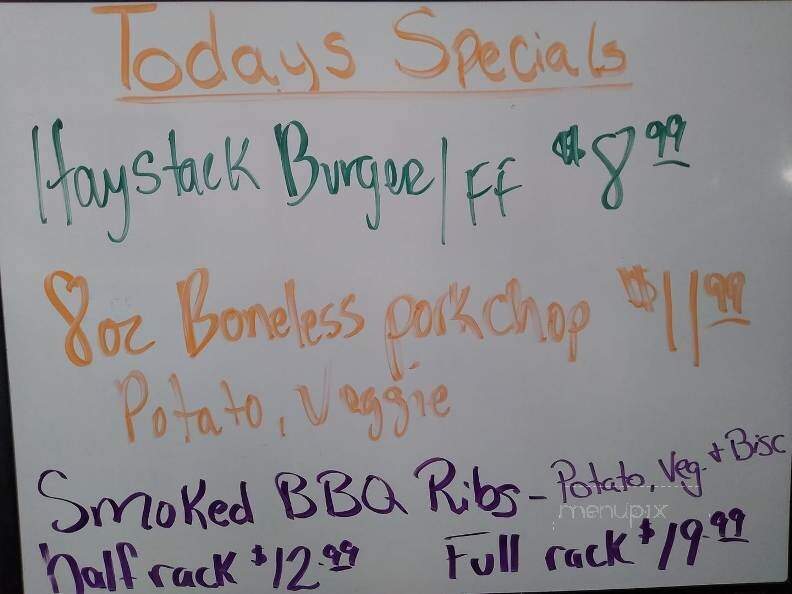 Todays Specials
Haystack Burger/FF $8.99
8oz Boneless porkchop $11.99
Potato, Veggie
Smoked BBQ Ribs - Potato, Veg. + Bisc
menupix
half rack $12.99 Full rack $19.99